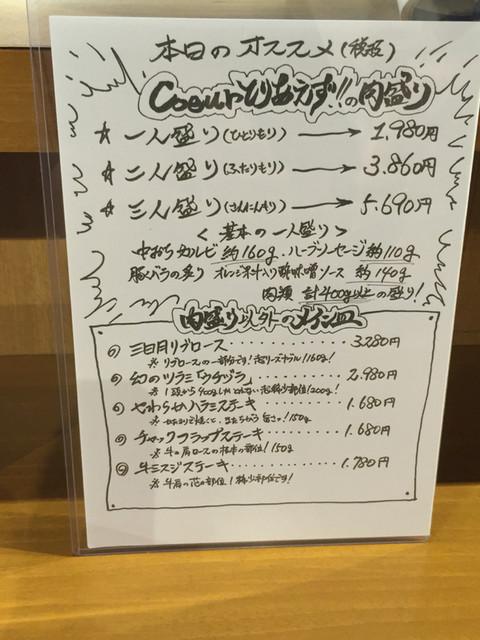 本日のオススメ(税抜)
Coeurとりあえず!!の肉盛り
☆ 一人盛り(ひとりもり) → 1,980円
☆ 二人盛り(ふたりもり) → 3,860円
☆ 三人盛り(さんにんもり) → 5,690円
<基本の一人盛り>
中おちカルビ 約160g、ハーブソーセージ 約110g
豚バラの炙り オレンジ果汁入り酢味噌ソース 約140g
肉類 計400g以上の盛り!
肉盛り以外のメイン皿
三日月リブロース 3,280円
※リブロースの一部分です! 160g!
幻のツラミ「クチヅラ」 2,980円
※1頭から400gしかとれない超稀少部位!200g!
やわらかハラミステーキ 1,680円
150g
チャックフラップステーキ 1,680円
※牛の肩ロースの根本の部位!150g
牛ミスジステーキ 1,780円
※牛肩の希少部位です!